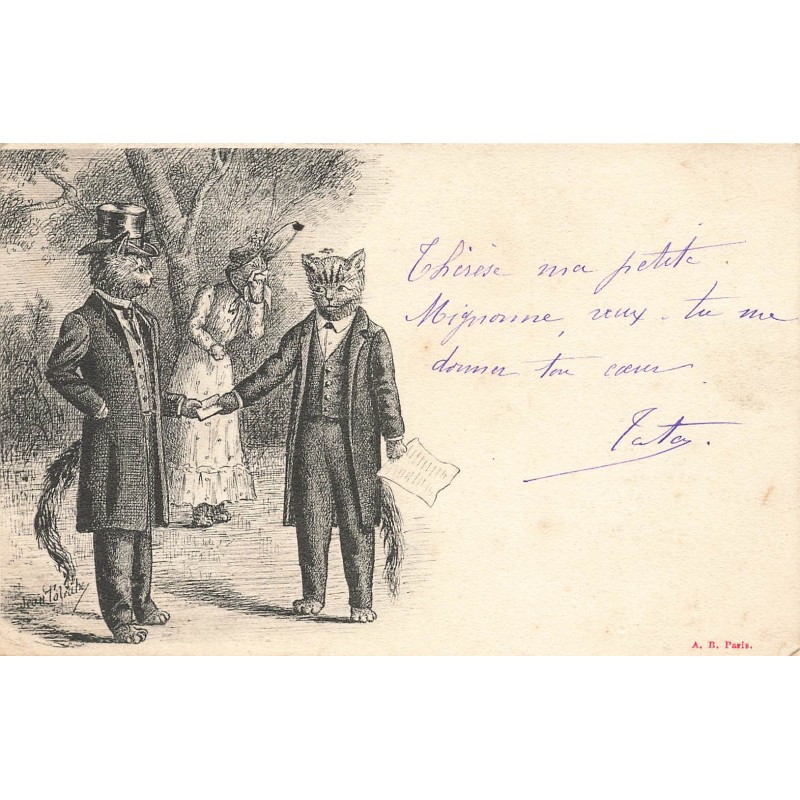 Thérèse ma petite
Mignonne, veux-tu me
donner ton cœur
A. B. Paris.